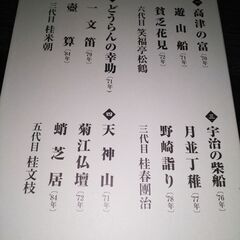 一 高津の富('70年)
遊山船('71年)
貧乏花見('72年)
六代目 笑福亭松鶴
どうらんの幸助('71年)
一文笛('79年)
壺算('84年)
三代目 桂米朝
三 宇治の柴船('76年)
月並丁稚('77年)
野崎詣り('78年)
三代目 桂春團治
四 天神山('71年)
菊江仏壇('73年)
蛸芝居('84年)
五代目 桂文枝